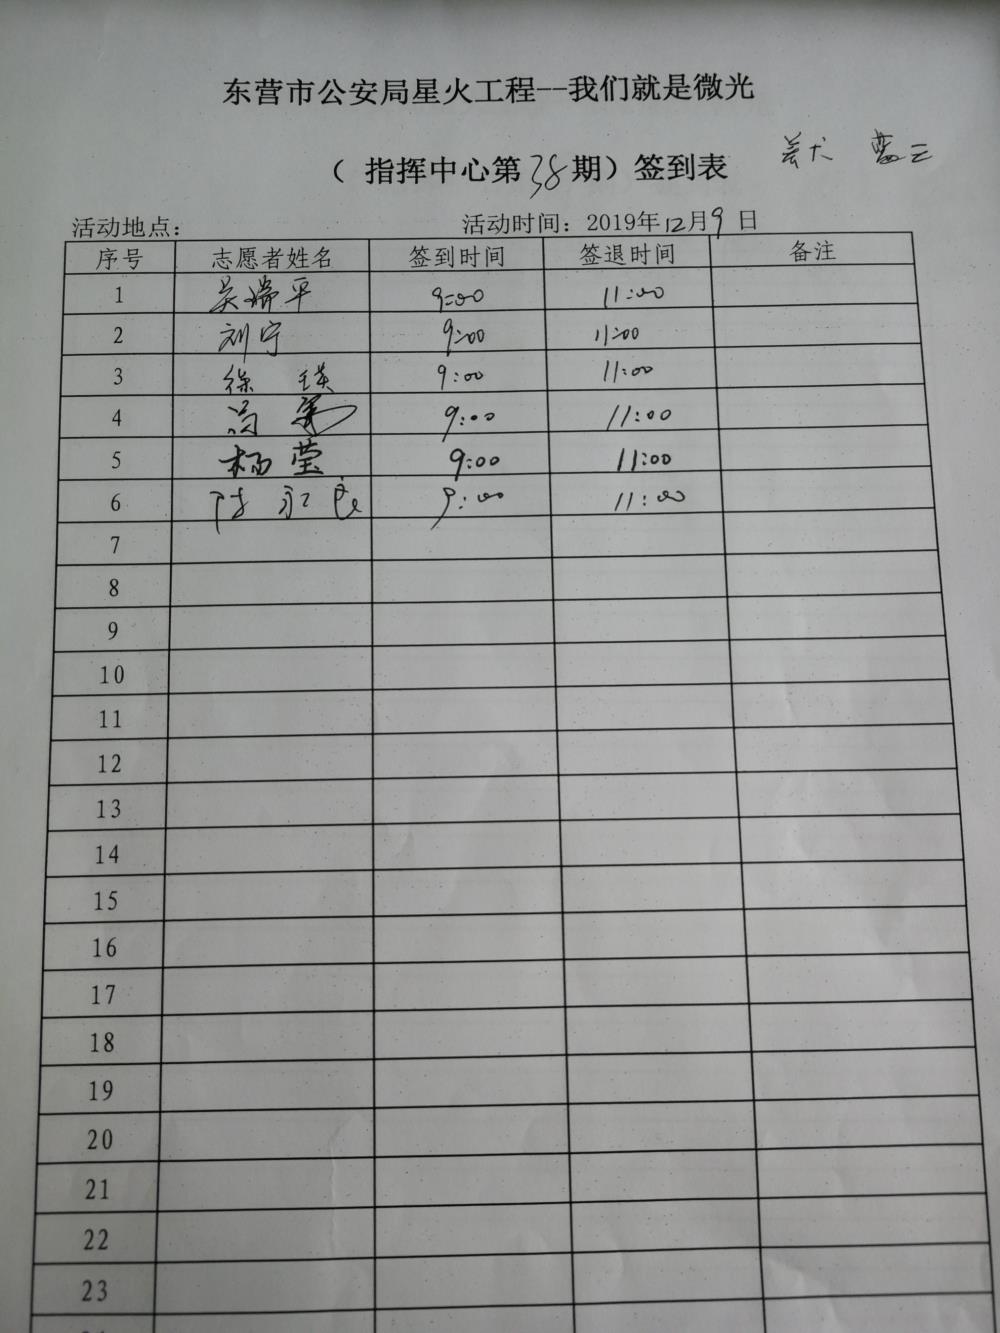 东营市公安局星火工程--我们就是微光
（ 指挥中心第38期）签到表
活动地点： 活动时间：2019年12月9日
序号 志愿者姓名 签到时间 签退时间 备注
1 吴瑞平 9:00 11:00
2 刘宁 9:00 11:00
3 徐瑛 9:00 11:00
4 冯 9:00 11:00
5 杨莹 9:00 11:00
6 陈永良 9:00 11:00
7
8
9
10
11
12
13
14
15
16
17
18
19
20
21
22
23